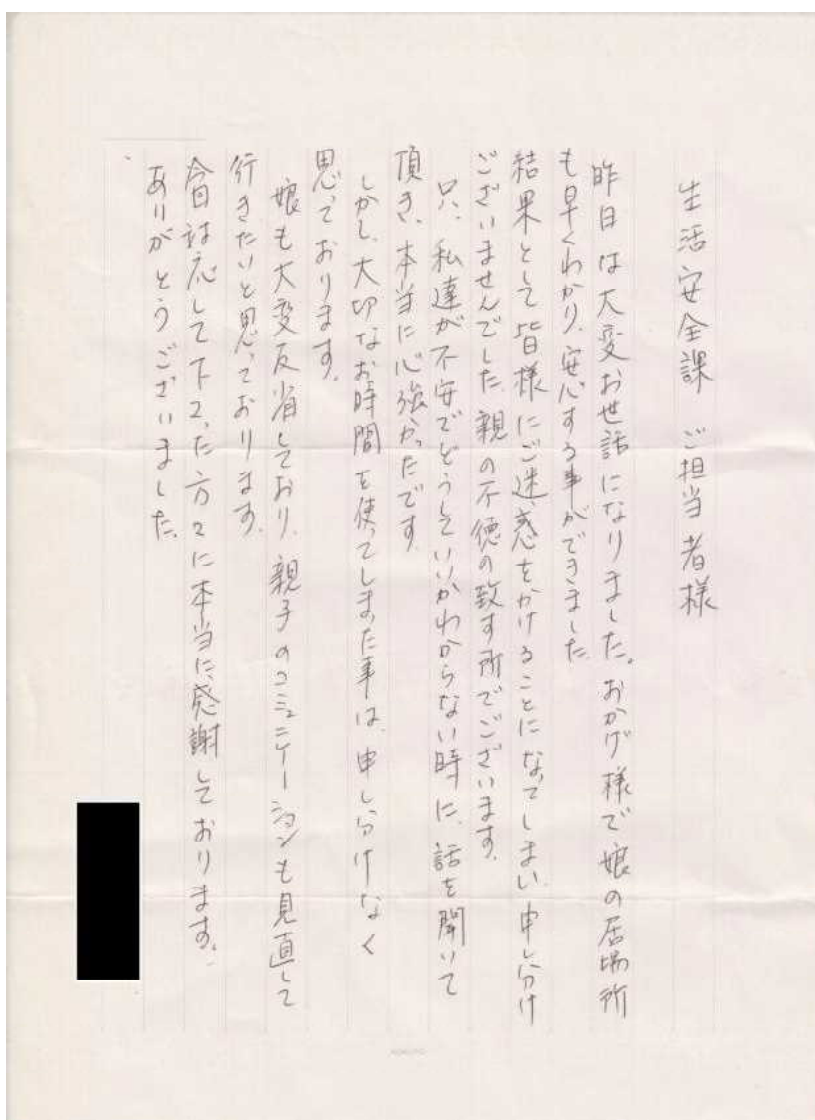 生活安全課 ご担当者様
昨日は大変お世話になりました。おかげ様で娘の居場所
も早くわかり、安心する事ができました。
結果として皆様にご迷惑をかけることになってしまい、申し分け
ございませんでした。親の不徳の致す所でございます。
只、私達が不安でどうしていいかわからない時に、話を聞いて
頂き、本当に心強かったです。
しかし、大切なお時間を使ってしまった事は、申し分けなく
思っております。
娘も大変反省しており、親子のコミュニケーションも見直して
行きたいと思っております。
今回対応して下さった方々に本当に感謝しております。
ありがとうございました。